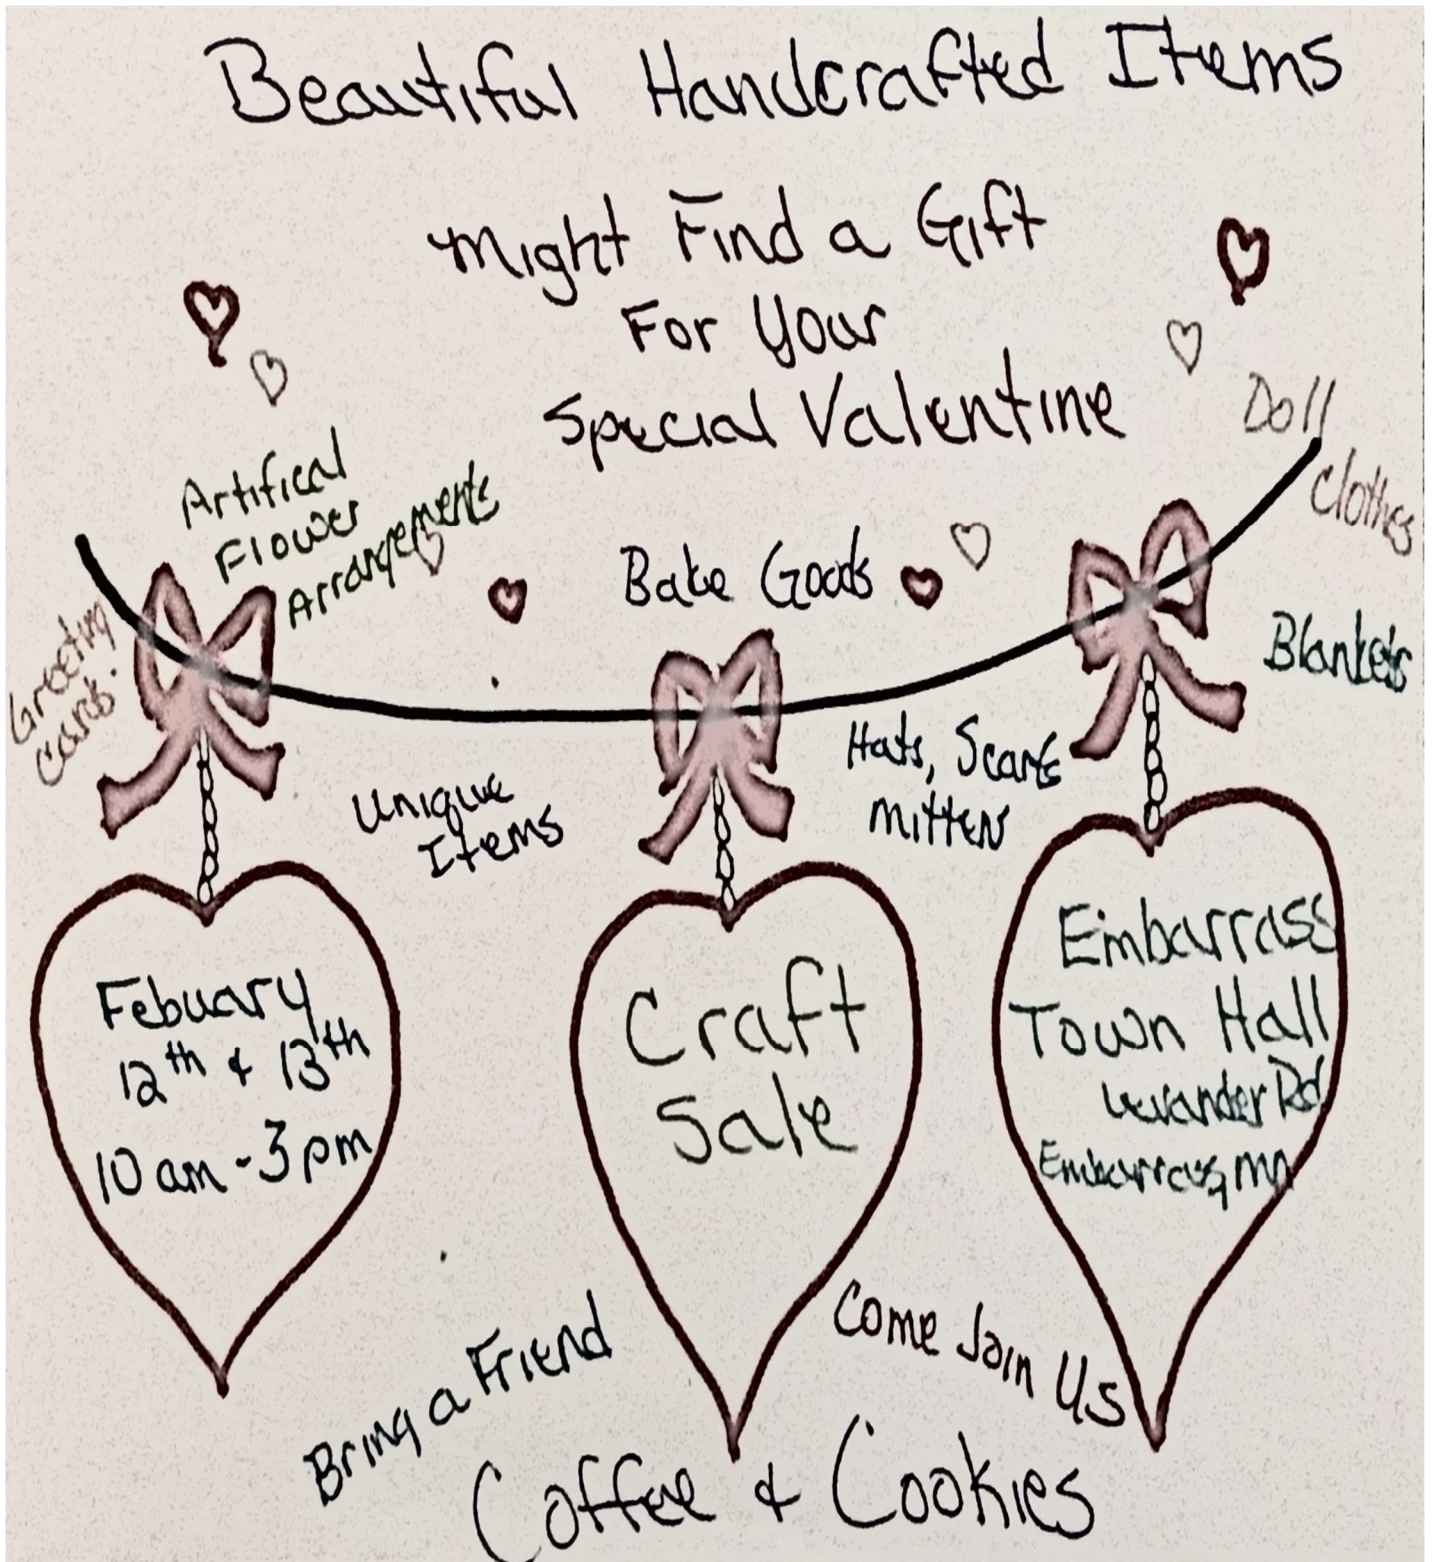 Beautiful Handcrafted Items
Might Find a Gift
For Your
Special Valentine
Artifical
Flower
Arrangements
Greeting
Cards
Bake Goods
Doll
Clothes
Blankets
Unique
Items
Hats, Scarfs
Mittens
Febuary
12th & 13th
10 am - 3 pm
Craft
Sale
Embarrass
Town Hall
Levander Rd
Embarrass, Mn
Bring a Friend
Come Join Us
Coffee & Cookies